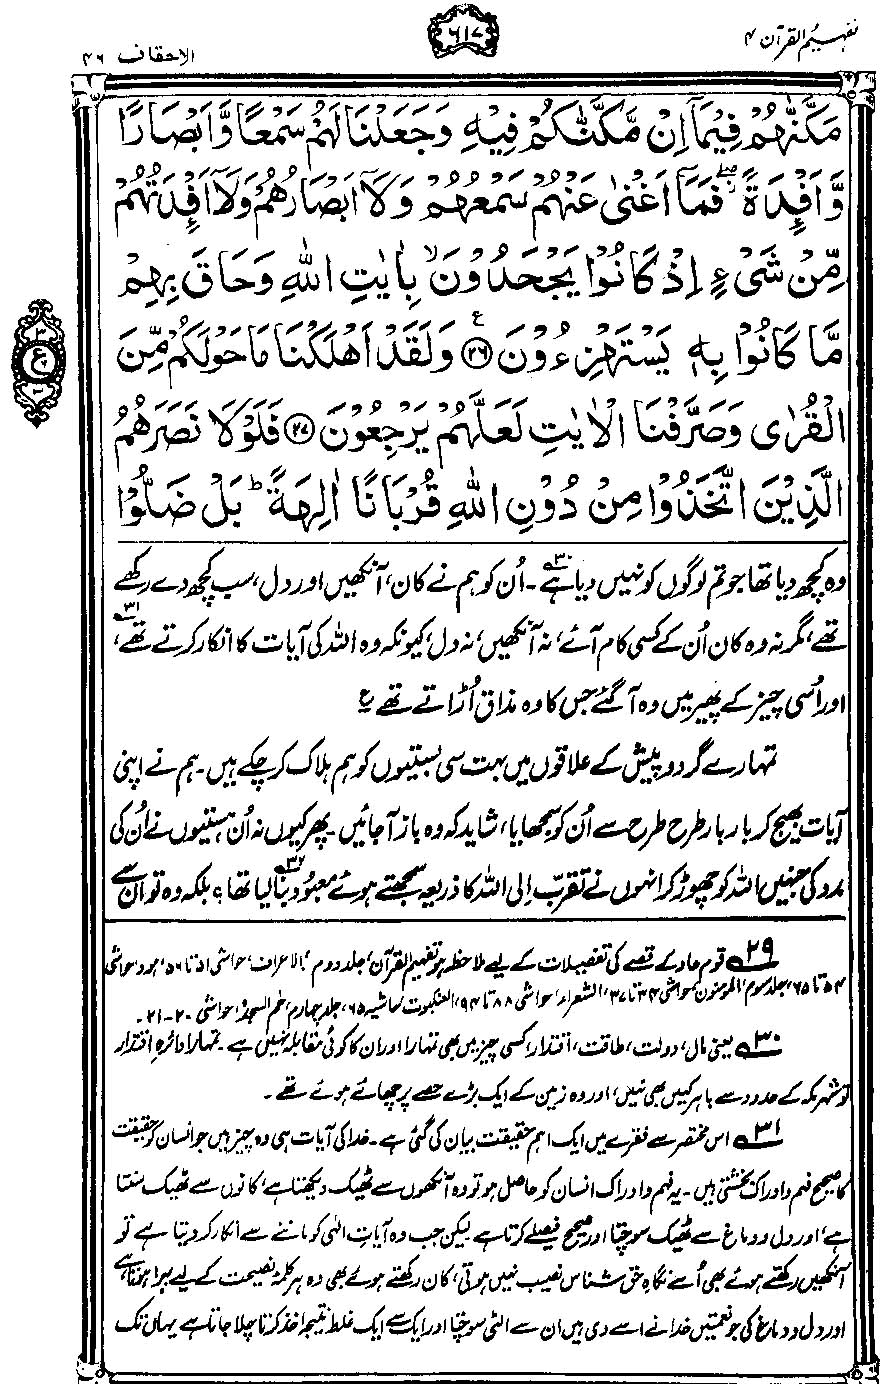 تفہیم القرآن ۴
۶۱۷
الاحقاف ۴۶
مَكَّنّٰهُمْ فِيْمَآ اِنْ مَّكَّنّٰكُمْ فِيْهِ وَجَعَلْنَا لَهُمْ سَمْعًا وَّاَبْصَارًا
وَّاَفْـِٕدَةً ۖ فَمَآ اَغْنٰى عَنْهُمْ سَمْعُهُمْ وَلَآ اَبْصَارُهُمْ وَلَآ اَفْـِٕدَتُهُمْ
مِّنْ شَىْءٍ اِذْ كَانُوْا يَجْحَدُوْنَ ۙ بِاٰيٰتِ اللّٰهِ وَحَاقَ بِهِمْ
مَّا كَانُوْا بِهٖ يَسْتَهْزِءُوْنَ ﴿۲۶﴾ ع وَلَقَدْ اَهْلَكْنَا مَا حَوْلَكُمْ مِّنَ
الْقُرٰى وَصَرَّفْنَا الْاٰيٰتِ لَعَلَّهُمْ يَرْجِعُوْنَ ﴿۲۷﴾ فَلَوْلَا نَصَرَهُمُ
الَّذِيْنَ اتَّخَذُوْا مِنْ دُوْنِ اللّٰهِ قُرْبَانًا اٰلِهَةً ؕ بَلْ ضَلُّوْا
ع
وہ کچھ دیا تھا جو تم لوگوں کو نہیں دیا ہے۳۰۔ اُن کو ہم نے کان، آنکھیں اور دل، سب کچھ دے رکھے
تھے، مگر نہ وہ کان اُن کے کسی کام آئے، نہ آنکھیں، نہ دل، کیونکہ وہ اللہ کی آیات کا انکار کرتے تھے،۳۱
اور اُسی چیز کے پھیر میں وہ آ گئے جس کا وہ مذاق اُڑاتے تھے ع
تمہارے گرد و پیش کے علاقوں میں بہت سی بستیوں کو ہم ہلاک کر چکے ہیں۔ ہم نے اپنی
آیات بھیج کر بار بار طرح طرح سے اُن کو سمجھایا، شاید کہ وہ باز آ جائیں۔ پھر کیوں نہ اُن ہستیوں نے اُن کی
مدد کی جنہیں اللہ کو چھوڑ کر انہوں نے تقرّب اِلی اللہ کا ذریعہ سمجھتے ہوئے معبُود بنا لیا تھا؟۳۲ بلکہ وہ تو اُن سے
۲۹ قومِ عاد کے قصے کی تفصیلات کے لیے ملاحظہ ہو تفہیم القرآن، جلد دوم، الاعراف، حواشی ۵۱ تا ۵۶، ہود، حواشی
۵۴ تا ۶۵، جلد سوم، المومنون، حواشی ۳۴ تا ۳۷، الشعراء، حواشی ۸۸ تا ۹۴، العنکبوت، حاشیہ ۶۵، جلد چہارم، حٰم السجدہ، حواشی ۲۰-۲۱۔
۳۰ یعنی مال، دولت، طاقت، اقتدار، کسی چیز میں بھی تمہارا اور ان کا کوئی مقابلہ نہیں ہے۔ تمہارا دائرہِ اقتدار
تو شہر مکہ کے حدود سے باہر کہیں بھی نہیں، اور وہ زمین کے ایک بڑے حصے پر چھائے ہوئے تھے۔
۳۱ اس مختصر سے فقرے میں ایک اہم حقیقت بیان کی گئی ہے۔ خدا کی آیات ہی وہ چیز ہیں جو انسان کو حقیقت
کا صحیح فہم و ادراک بخشتی ہیں۔ یہ فہم و ادراک انسان کو حاصل ہو تو وہ آنکھوں سے ٹھیک دیکھتا ہے، کانوں سے ٹھیک سنتا
ہے، اور دل و دماغ سے ٹھیک سوچتا اور صحیح فیصلے کرتا ہے لیکن جب وہ آیاتِ الٰہی کو ماننے سے انکار کر دیتا ہے تو
آنکھیں رکھتے ہوئے بھی اُسے نگاہِ حق شناس نصیب نہیں ہوتی، کان رکھتے ہوئے بھی وہ ہر کلمۂ نصیحت کے لیے بہرا ہوتا ہے،
اور دل و دماغ کی جو نعمتیں خدا نے اسے دی ہیں ان سے الٹی سوچتا اور ایک سے ایک غلط نتیجہ اخذ کرتا چلا جاتا ہے یہاں تک